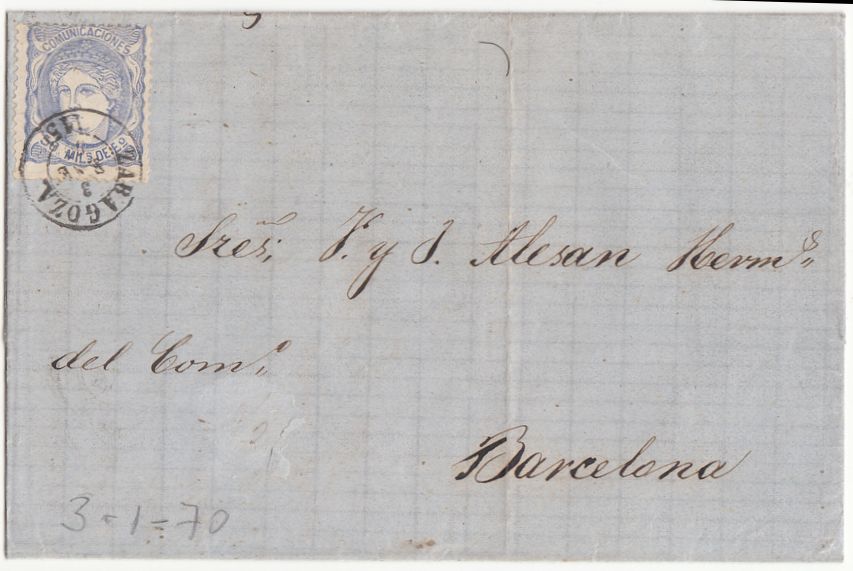 COMUNICACIONES
MILS. DE Eo
ZARAGOZA
3
Sres. V. y J. Alesan Herms.
del Como.
Barcelona
3-1-70